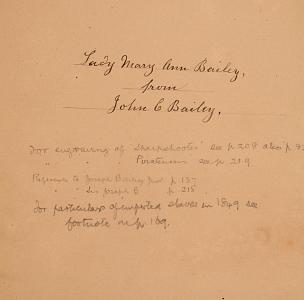 Lady Mary Ann Bailey,
from
John C Bailey,
For engraving of 'Sharpshooter' see p 208 also p 93
" " " see p 219
References to Joseph Bailey p. 137
" " Joseph B p. 215
For particulars of imported slaves in 1849 see
footnote on p. 169.